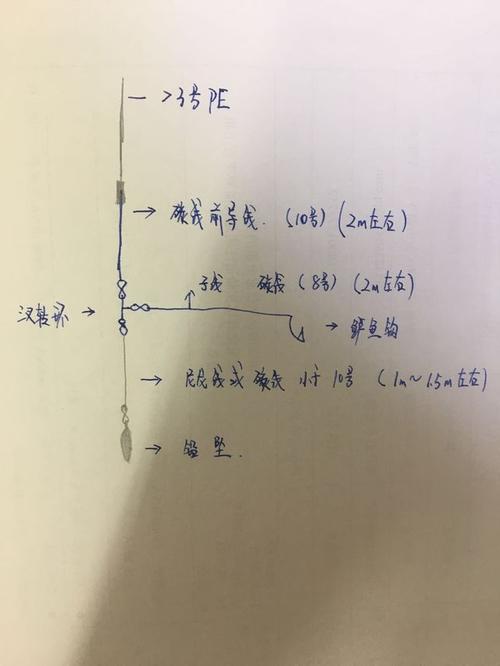 —>3号PE
→ 碳线前导线. (10号) (2m左右)
子线 碳线 (8号) (2m左右)
汉转环 →
→ 鲈鱼钩
→ 尼龙线或碳线 小于10号 (1m~1.5m左右)
→ 铅坠.